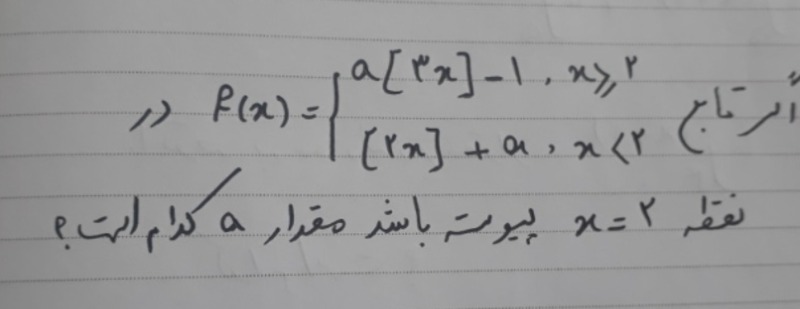 اگر تابع f(x) = { a[۳x] - ۱ , x ≥ ۲
[۲x] + a , x < ۲ در
نقطه x = ۲ پیوسته باشد مقدار a کدام است؟